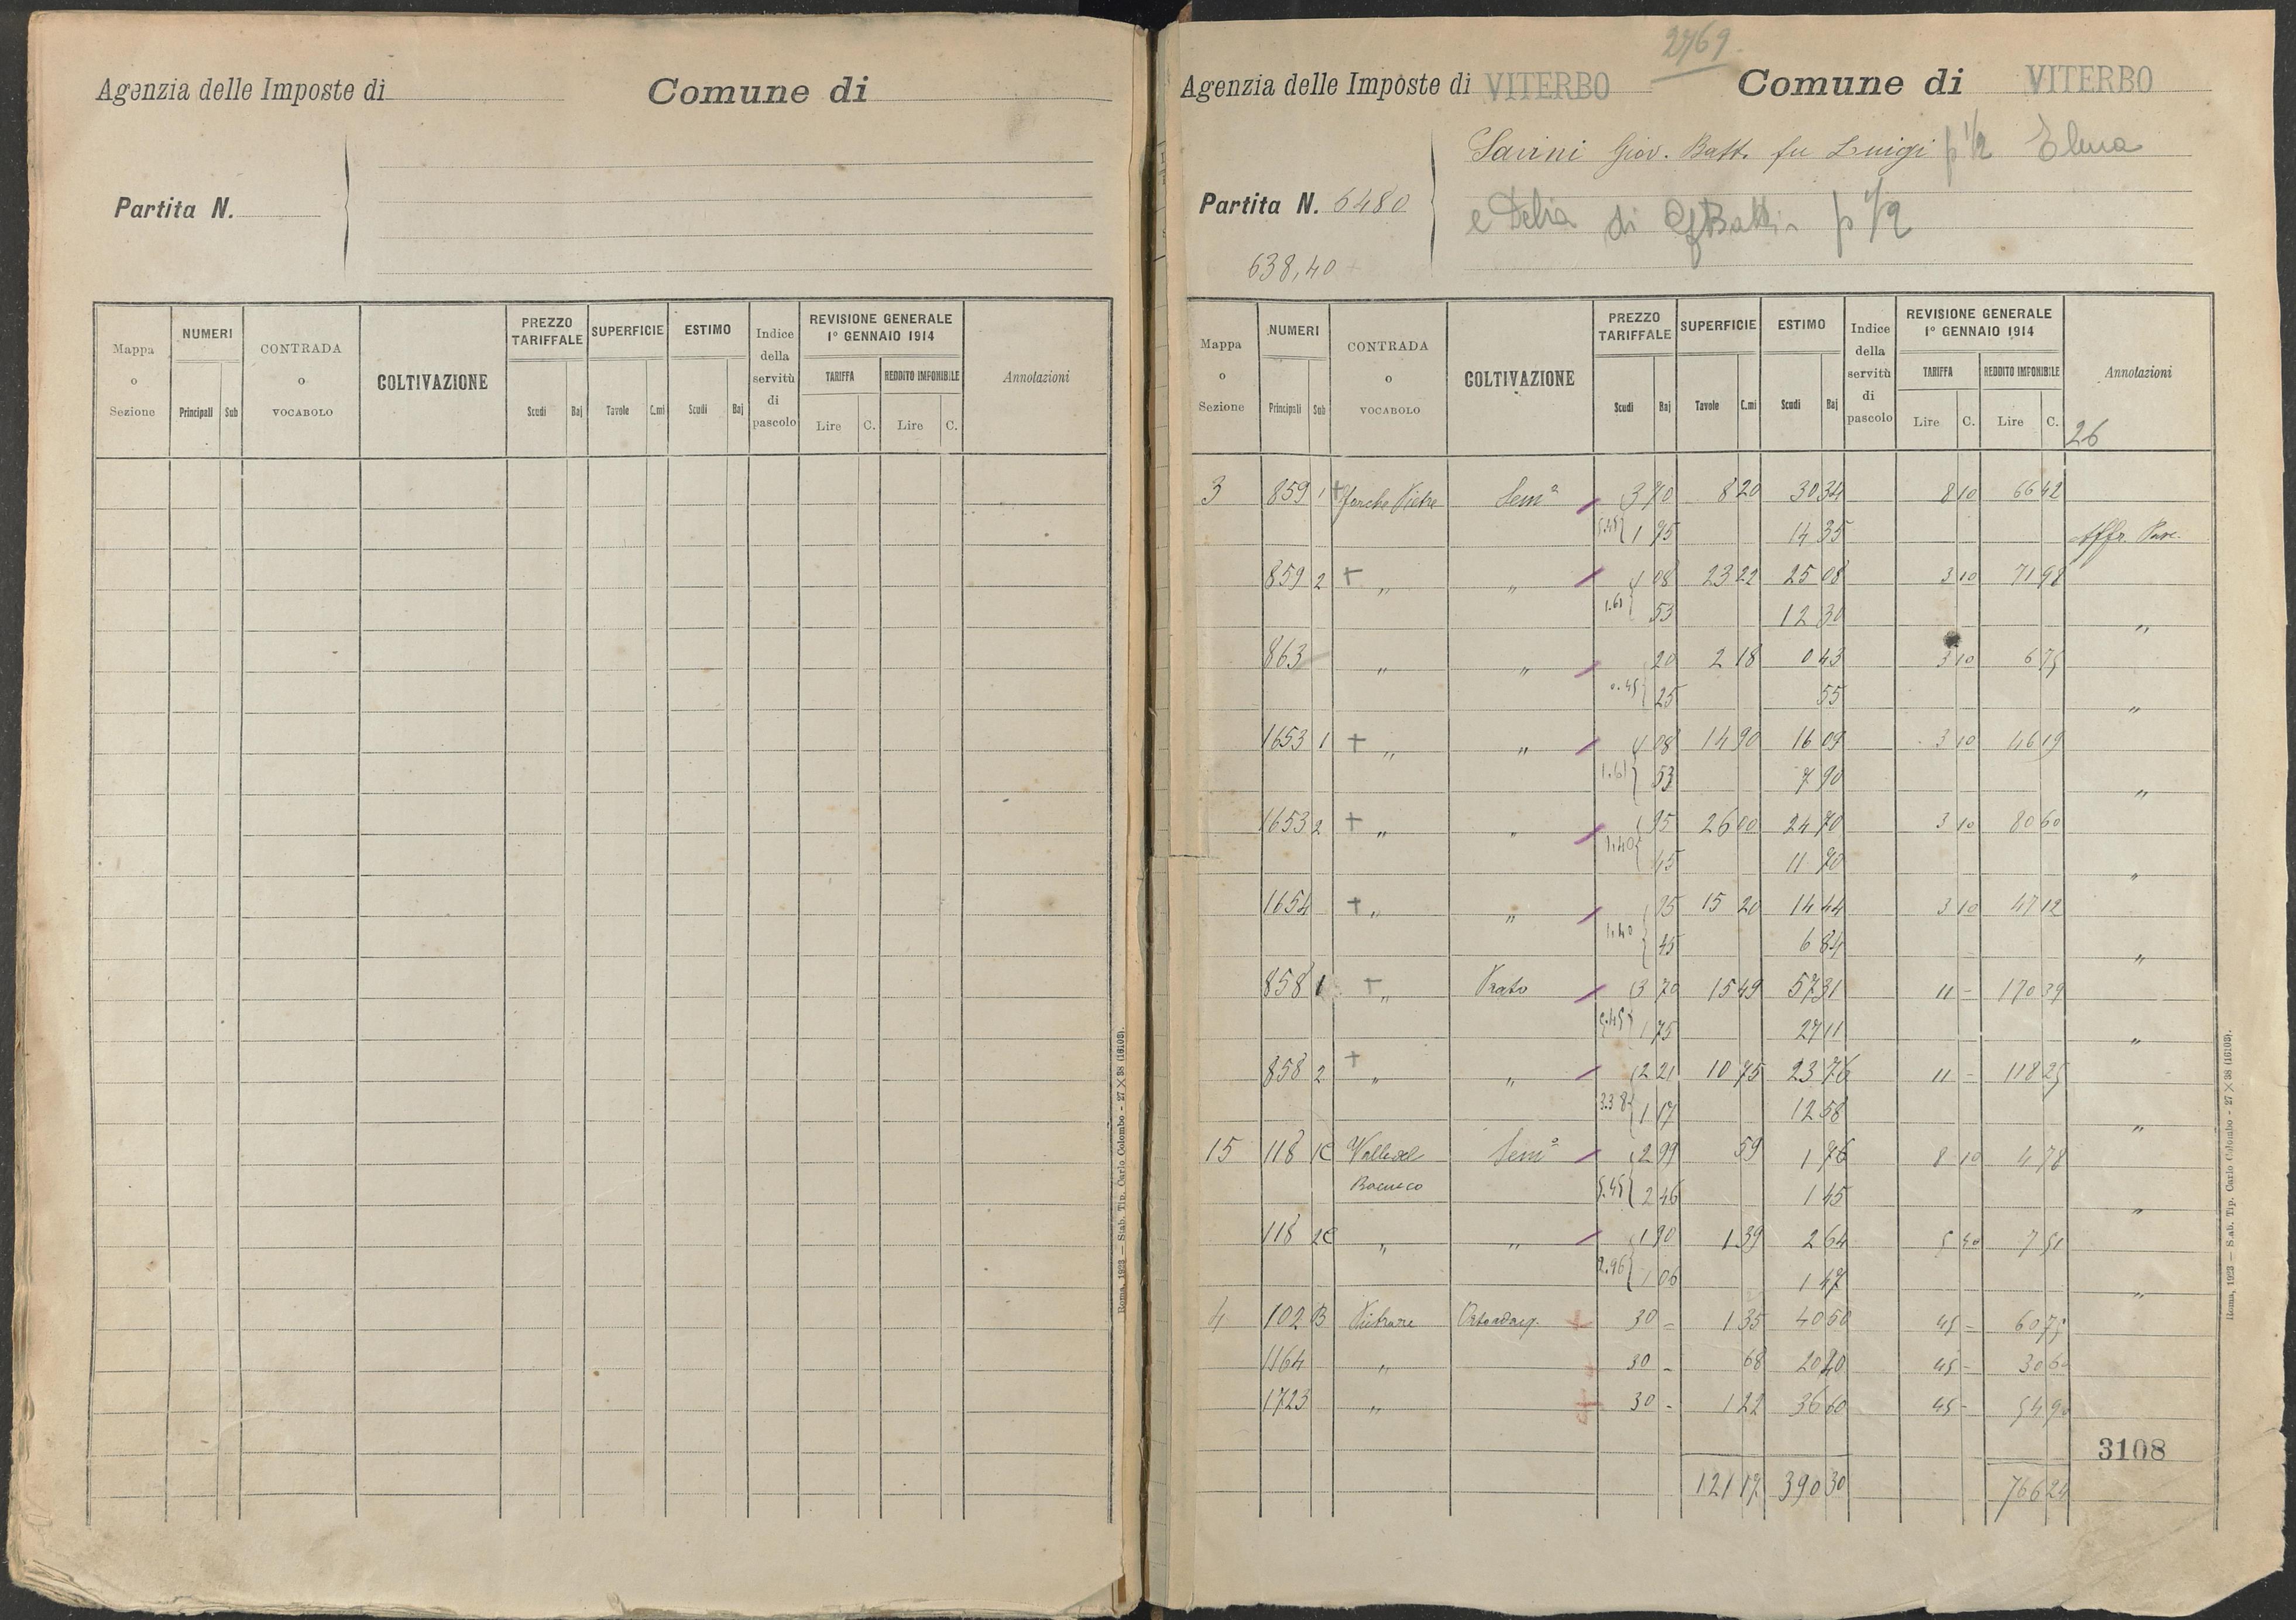 Agenzia delle Imposte di
Comune di
Partita N.
Mappa o Sezione
NUMERI
Principali Sub
CONTRADA o VOCABOLO
COLTIVAZIONE
PREZZO TARIFFALE
Scudi Baj
SUPERFICIE
Tavole C.mi
ESTIMO
Scudi Baj
Indice della servitù di pascolo
REVISIONE GENERALE 1° GENNAIO 1914
TARIFFA
Lire C.
REDDITO IMPONIBILE
Lire C.
Annotazioni
Roma, 1923 — Stab. Tip. Carlo Colombo - 27 × 38 (16103).
2769
Agenzia delle Imposte di VITERBO
Comune di VITERBO
Savini Giov. Batt. fu Luigi p 1/2 Elena
Partita N. 6480
e Delia di GBatta p 1/2
638,40
Mappa o Sezione
NUMERI
Principali Sub
CONTRADA o VOCABOLO
COLTIVAZIONE
PREZZO TARIFFALE
Scudi Baj
SUPERFICIE
Tavole C.mi
ESTIMO
Scudi Baj
Indice della servitù di pascolo
REVISIONE GENERALE 1° GENNAIO 1914
TARIFFA
Lire C.
REDDITO IMPONIBILE
Lire C.
Annotazioni
26
3 859 1 + Pietre Sem° 3 70 8 20 30 34 8 10 66 42
5.45 1 75 14 35 Affr.
859 2 + " " 1 08 23 22 25 08 3 10 71 98
1.61 53 12 30 "
863 " " 20 2 18 0 43 3 10 6 75
0.45 25 55 "
1653 1 + " " 1 08 14 90 16 09 3 10 46 19
1.61 53 7 90 "
1653 2 + " " 95 26 00 24 70 3 10 80 60
1.40 45 11 70 "
1654 + " " 95 15 20 14 44 3 10 47 12
1.40 45 6 84 "
858 1 + " Prato 3 70 15 49 57 31 11 - 170 39
5.45 1 75 27 11 "
858 2 + " " 2 21 10 75 23 76 11 - 118 25
3.38 1 17 12 58 "
15 118 1C Valle del Sem° 2 99 59 1 76 8 10 4 78
5.45 2 46 1 45 "
118 2C " " 1 90 1 39 2 64 5 40 7 51
2.96 1 06 1 47 "
4 102 B 30 - 1 35 40 50 45 - 60 75
1164 " 30 - 68 20 40 45 - 30 60
1723 " 30 - 1 22 36 60 45 - 54 90
3108
121 17 390 30 766 24
Roma, 1923 — Stab. Tip. Carlo Colombo - 27 × 38 (16103).